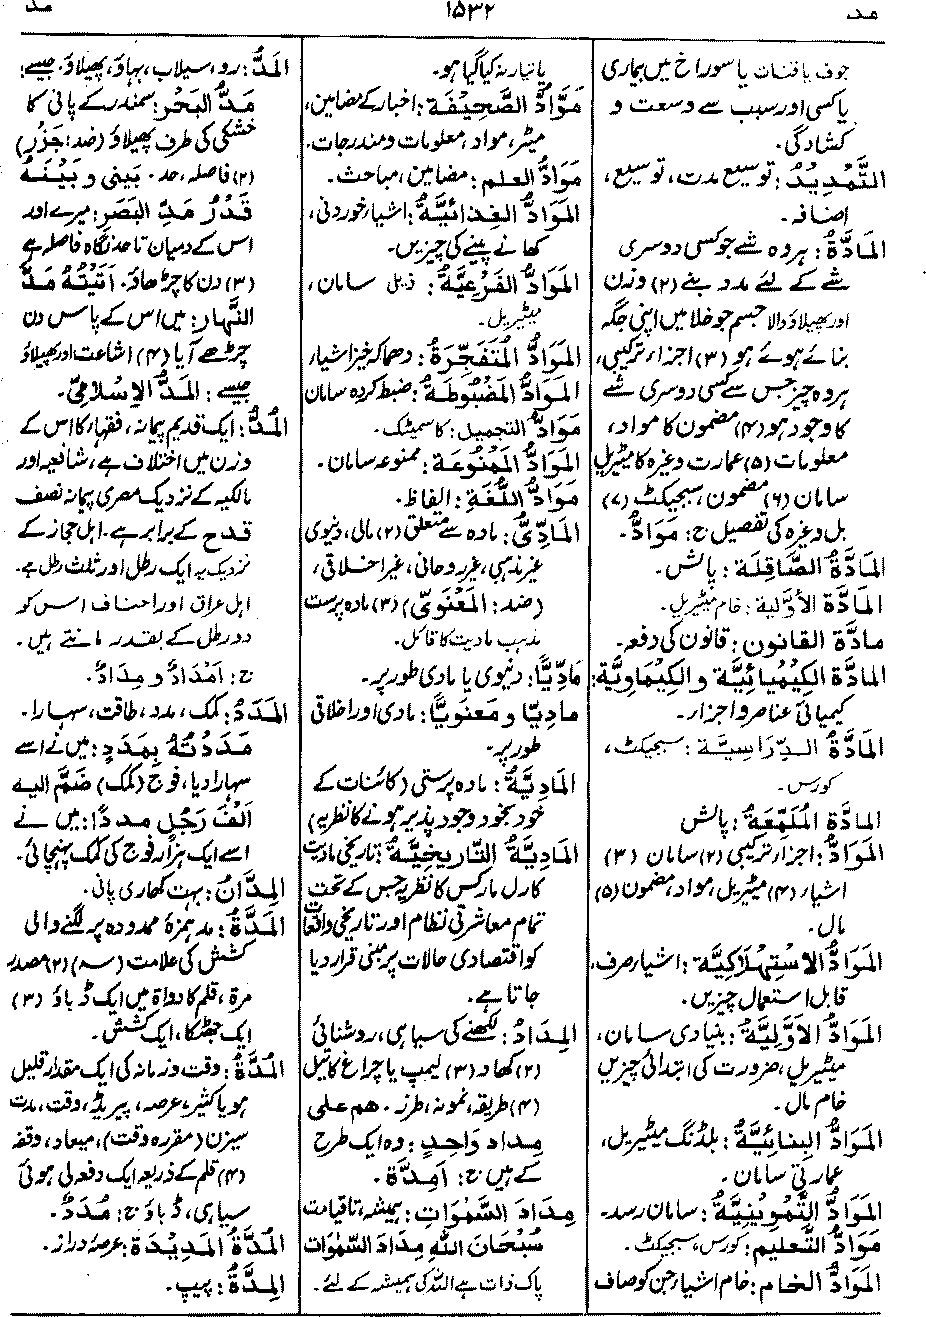 مد
۱۵۳۲
مد
جوف یا قنات یا سوراخ میں بیماری
یا کسی اور سبب سے وسعت و
کشادگی۔
التَّمْدِيْدُ: توسیع مدت، توسیع،
اضافہ۔
المَادَّةُ: ہر وہ شے جو کسی دوسری
شے کے لئے مدد بنے (۲) وزن
اور پھیلاؤ والا جسم جو خلا میں اپنی جگہ
بنائے ہوئے ہو (۳) اجزاء ترکیبی،
ہر وہ چیز جس سے کسی دوسری شے
کا وجود ہو (۴) مضمون کا مواد،
معلومات (۵) عمارت وغیرہ کا میٹریل
سامان (۶) مضمون، سبجیکٹ (۷)
بل وغیرہ کی تفصیل ج: مَوَادُّ۔
المَادَّةُ الصَّاقِلَة: پالش۔
المَادَّةُ الأوَّلِية: خام میٹریل۔
مادَّة القانون: قانون کی دفعہ۔
المادَّة الكِيْمِيائِيَّة و الكِيْماوِيَّة:
کیمیائی عناصر و اجزار۔
المَادَّةُ الدِّرَاسِيَّة: سبجیکٹ،
کورس۔
المَادَّةُ المُلَمِّعَةُ: پالش
المَوَادُّ: اجزاء ترکیبی (۲) سامان (۳)
اشیار (۴) میٹریل، مواد، مضمون (۵)
مال۔
المَوَادُّ الاسْتِهْلَاكِيَّة: اشیار صرف،
قابل استعمال چیزیں۔
المَوَادُّ الاَوَّلِيَّةُ: بنیادی سامان،
میٹریل، ضرورت کی ابتدائی چیزیں
خام مال۔
المَوَادُّ البِنائِيَّةُ: بلڈنگ میٹریل،
عمارتی سامان۔
المَوَادُّ التَّمْوِيْنِيَّةُ: سامان رسد۔
مَوَادُّ التَّعليم: کورس، سبجیکٹ۔
المَوَادُّ الخام: خام اشیار جن کو صاف
یا تیار نہ کیا گیا ہو۔
مَوَادُّ الصَّحِيْفَة: اخبار کے مضامین،
میٹر، مواد، معلومات و مندرجات۔
مَوَادُّ العلم: مضامین، مباحث۔
المَوَادُّ الغِذائِيَّةُ: اشیار خوردنی،
کھانے پینے کی چیزیں۔
المَوَادُّ الفَرْعِيَّةُ: ذیلی سامان،
میٹیریل۔
المَوَادُّ المُتَفَجِّرَةُ: دھماکہ خیز اشیار،
المَوَادُّ المَضْبُوطَةُ: ضبط کردہ سامان
مَوَادُّ التجميل: کاسمیٹک۔
المَوَادُّ المَمْنُوعَةُ: ممنوعہ سامان۔
مَوَادُّ اللُّغَةِ: الفاظ۔
المَادِّيُّ: مادہ سے متعلق (۲) مالی، دنیوی
غیر مذہبی، غیر روحانی، غیر اخلاقی،
(ضد: المَعْنَوِيّ) (۳) مادہ پرست
مذہب مادیت کا قائل۔
مَادِّيًّا: دنیوی یا مادی طور پر۔
مادِيّا و مَعْنَوِيًّا: مادی اور اخلاقی
طور پر۔
المَادِيَّةُ: مادہ پرستی (کائنات کے
خود بخود وجود پذیر ہونے کا نظریہ)
المَادِيَّةُ التَّارِيخِيَّةُ: تاریخی مادیت
کارل مارکس کا نظریہ جس کے تحت
تمام معاشرتی نظام اور تاریخی واقعات
کو اقتصادی حالات پر مبنی قرار دیا
جاتا ہے۔
المِدَادُ: لکھنے کی سیاہی، روشنائی
(۲) کھاد (۳) لیمپ یا چراغ کا تیل
(۴) طریقہ، نمونہ، طرز۔ هم على
مِداد وَاحِدٍ: وہ ایک طرح
کے ہیں ج: اَمِدَّة۔
مِدَادَ السَّمٰوَاتِ: ہمیشہ، تا قیامت
سُبْحَانَ اللهِ مِدَادَ السَّمٰوَات
پاک ذات ہے اللہ کی ہمیشہ کے لئے۔
المَدُّ: رو، سیلاب، بہاؤ، پھیلاؤ۔ جیسے:
مَدُّ البَحْر: سمندر کے پانی کا
خشکی کی طرف پھیلاؤ (ضد: جَزْر)
(۲) فاصلہ، حد۔ بَيْنِي وَ بَيْنَهُ
قَدْرُ مَدِّ البَصَرِ: میرے اور
اس کے درمیان تا حد نگاہ فاصلہ ہے
(۳) دن کا چڑھاؤ۔ اَتَيْتُهُ مَدَّ
النَّهار: میں اس کے پاس دن
چڑھے آیا (۴) اشاعت اور پھیلاؤ
جیسے: المَدُّ الإسْلَامِيّ۔
المُدُّ: ایک قدیم پیمانہ، فقہار کا اس کے
وزن میں اختلاف ہے، شافعیہ اور
مالکیہ کے نزدیک مصری پیمانہ نصف
قدح کے برابر ہے۔ اہل حجاز کے
نزدیک یہ ایک رطل اور ثلث رطل ہے۔
اہل عراق اور احناف اس کو
دو رطل کے بقدر مانتے ہیں۔
ج: اَمْدَادٌ و مِدَادٌ۔
المَدَدُ: کمک، مدد، طاقت، سہارا۔
مَدَدْتُهُ بِمَدَدٍ: میں نے اسے
سہارا دیا، فوج (کمک) ضَمَّ اليه
اَلْفُ رَجُلٍ مددًا: میں نے
اسے ایک ہزار فوج کی کمک پہنچائی۔
المِدَّانُ: بہت کھاری پانی۔
المَدَّةُ: مد ہمزۂ ممدودہ پر لگنے والی
کشش کی علامت (؁) (۲) مصدر
مرة، قلم کا دواۃ میں ایک ڈباؤ (۳)
ایک جھٹکا، ایک کشش۔
المُدَّةُ: وقت و زمانہ کی ایک مقدار قلیل
ہو یا کثیر، عرصہ، پیریڈ، وقت، مدت
سیزن (مقررہ وقت)، میعاد، وقفہ
(۴) قلم کے ذریعہ ایک دفعہ لی ہوئی
سیاہی، ڈباؤ ج: مُدَدٌ۔
المُدَّةُ المَدِيْدَة: عرصۂ دراز۔
المِدَّةُ: پیپ۔